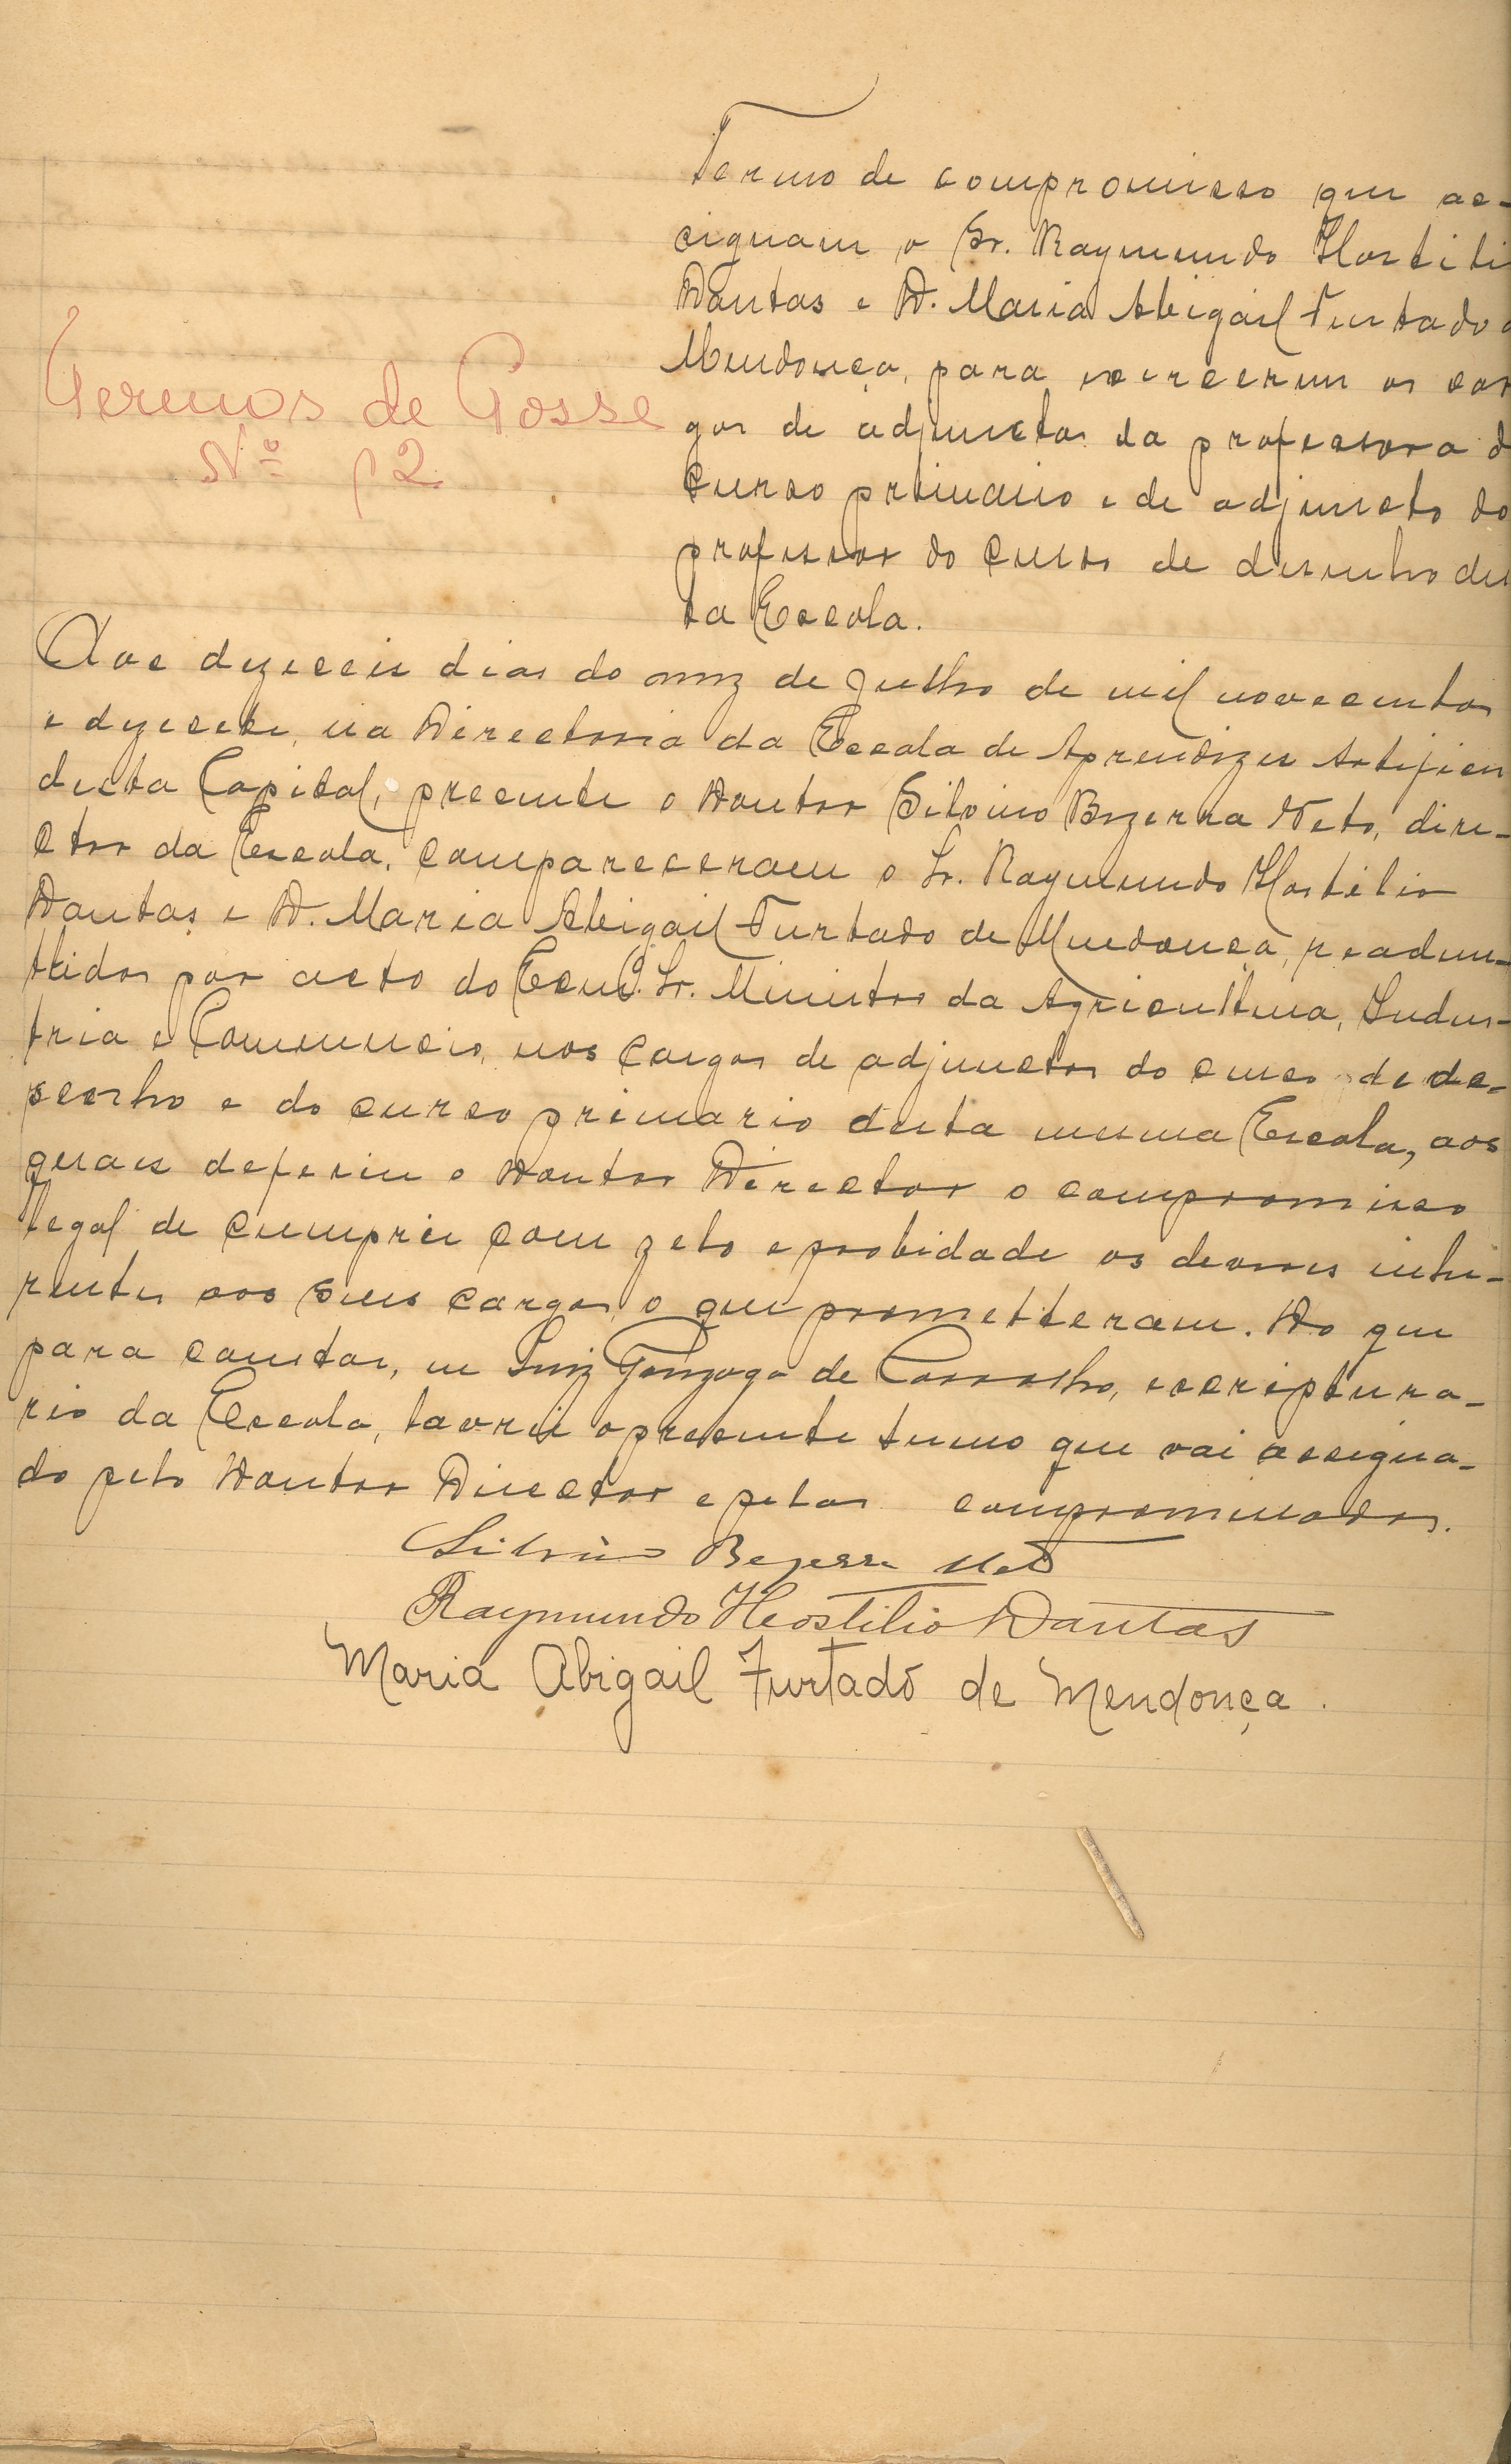 Termo de compromisso que as-
signam o Sr. Raymundo Hostili
Dantas e D. Maria Abigail Furtado d
Mendonça, para exercerem os car
gos de adjuncto da professora d
curso primario e de adjuncto do
professor do curso de desenho des
ta Escola.
Termos de Posse
Nº 12
Aos dezeseis dias do mez de Julho de mil novecentos
e dezesete, na Directoria da Escola de Aprendizes Artifices
desta Capital, presente o Doutor Silvino Bezerra Neto, dire-
ctor da Escola, compareceram o Sr. Raymundo Hostilio
Dantas e D. Maria Abigail Furtado de Mendonça, readmi-
ttidos por acto do Exmº. Sr. Ministro da Agricultura, Indus-
tria e Commercio, nos cargos de adjunctos do curso de de-
senho e do curso primario desta mesma Escola, aos
quaes deferiu o Doutor Director o compromisso
legal de cumprir com zelo e probidade os deveres inhe-
rentes aos seus cargos, o que prometteram. Do que
para constar, eu Luiz Gonzaga de Carvalho, escriptura-
rio da Escola, lavrei o presente termo que vai assigna-
do pelo Doutor Director e pelos compromissados.
Silvino Bezerra Neto
Raymundo Hostilio Dantas
Maria Abigail Furtado de Mendonça.